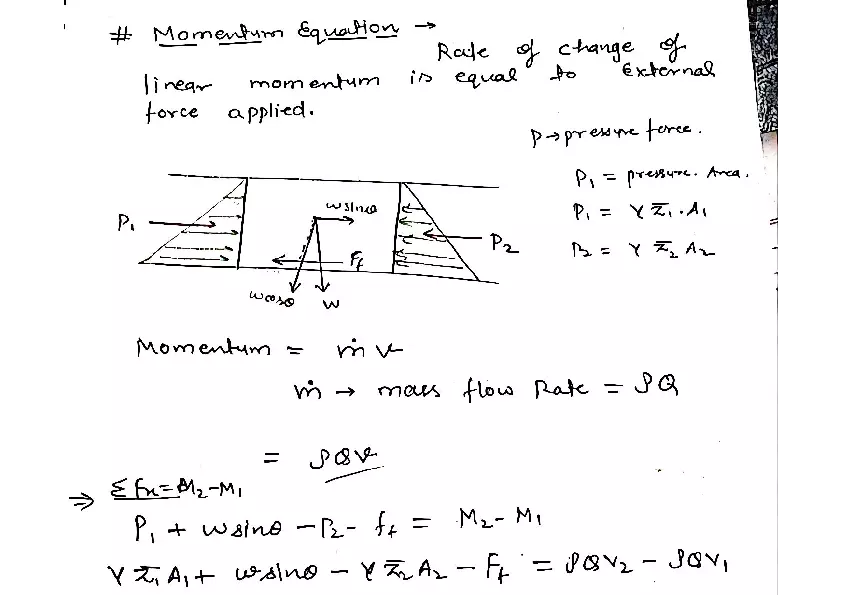 # Momentum Equation →
Rate of change of
linear momentum is equal to External
force applied.
P→pressure force.
P₁ = pressure. Area.
P₁ = γ z̅₁.A₁
P₂ = γ z̅₂ A₂
P₁
wsinθ
P₂
Ff
wcosθ
W
Momentum = ṁ v
ṁ → mass flow Rate = ρQ
= ρQv
⇒ ΣFx=M₂-M₁
P₁ + wsinθ - P₂ - ff = M₂- M₁
γ z̅₁ A₁ + wsinθ - γ z̅₂ A₂ - Ff = ρQV₂ - ρQV₁